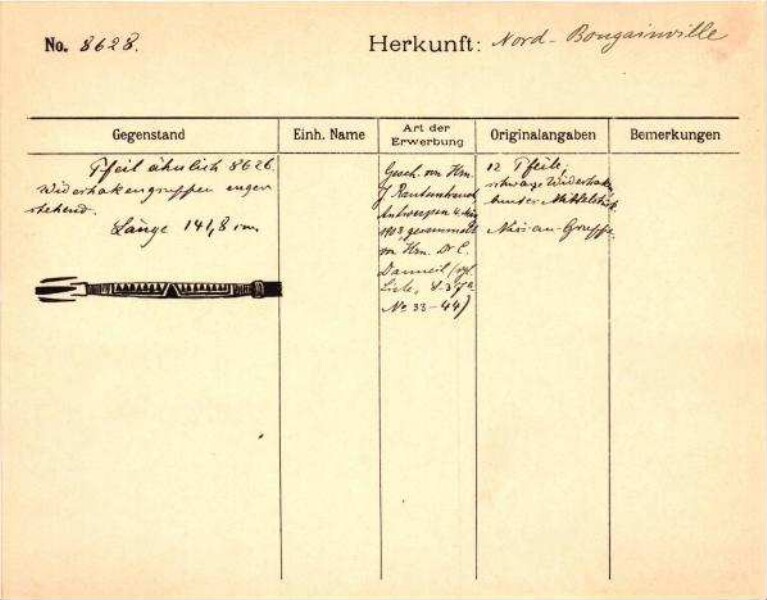 No. 8628.
Herkunft: Nord-Bougainville
Gegenstand
Einh. Name
Art der
Erwerbung
Originalangaben
Bemerkungen
Pfeil ähnlich 8626.
Widerhakengruppen enger
stehend.
Länge 141,8 cm
Gesch. von Hrn.
J Rautenstrauch
Antwerpen
1903 gesammelt
von Hrn. Dr C.
Danneil (vgl.
Liste,
No 33-44)
12 Pfeile,
schwarze Widerhak.
bunter Mittelstück.
Nissan-Gruppe.